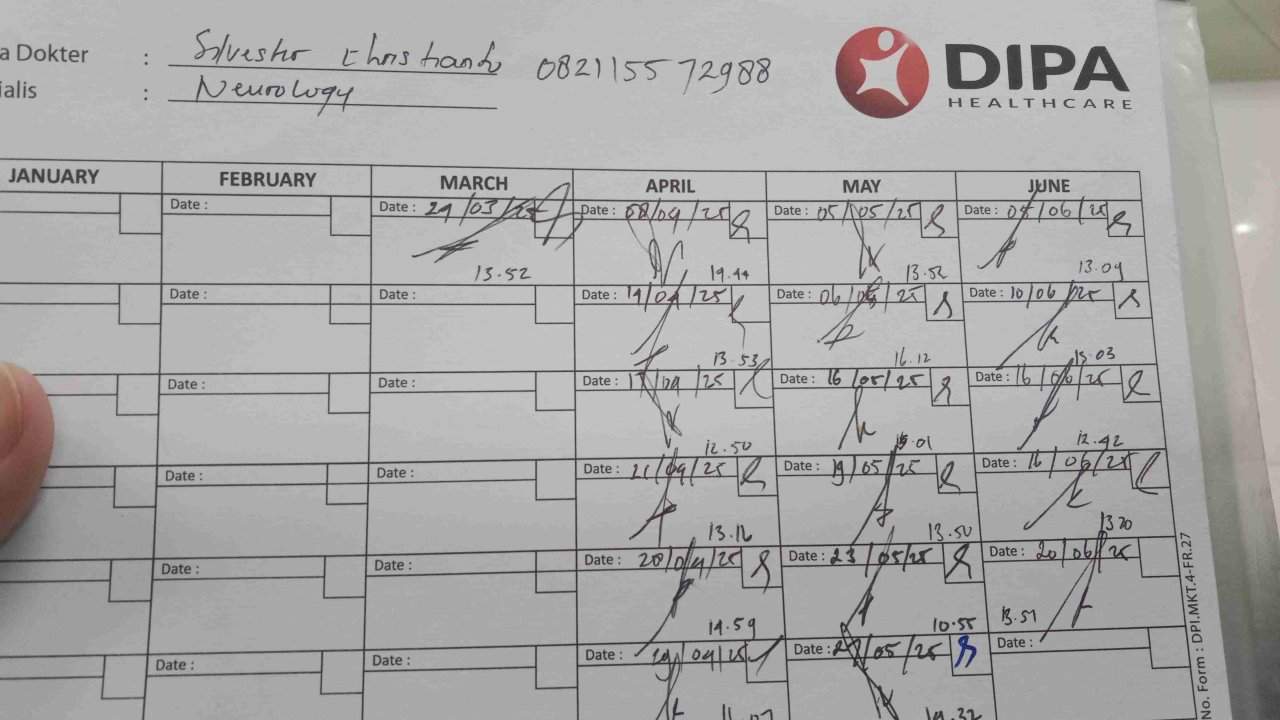 a Dokter : Silvester Christianto 082115572988
ialis : Neurology
DIPA
HEALTHCARE
JANUARY FEBRUARY MARCH APRIL MAY JUNE
Date : Date : 29/03/25 Date : 08/04/25 Date : 05/05/25 Date : /06/25
13.52 14.44 13.52 13.04
Date : Date : Date : 14/04/25 Date : 06/05/25 Date : 10/06/25
13.53 16.12 15.03
Date : Date : Date : 17/04/25 Date : 16/05/25 Date : 16/06/25
12.50 .01 12.42
Date : Date : Date : 21/04/25 Date : 19/05/25 Date : 16/06/25
13.16 13.50
Date : Date : Date : 28/04/25 Date : 23/05/25 Date : 20/06/25
14.59 10.55 13.51
Date : Date : Date : 29/04/25 Date : /05/25 Date :
No. Form : DPI.MKT.4-FR.27